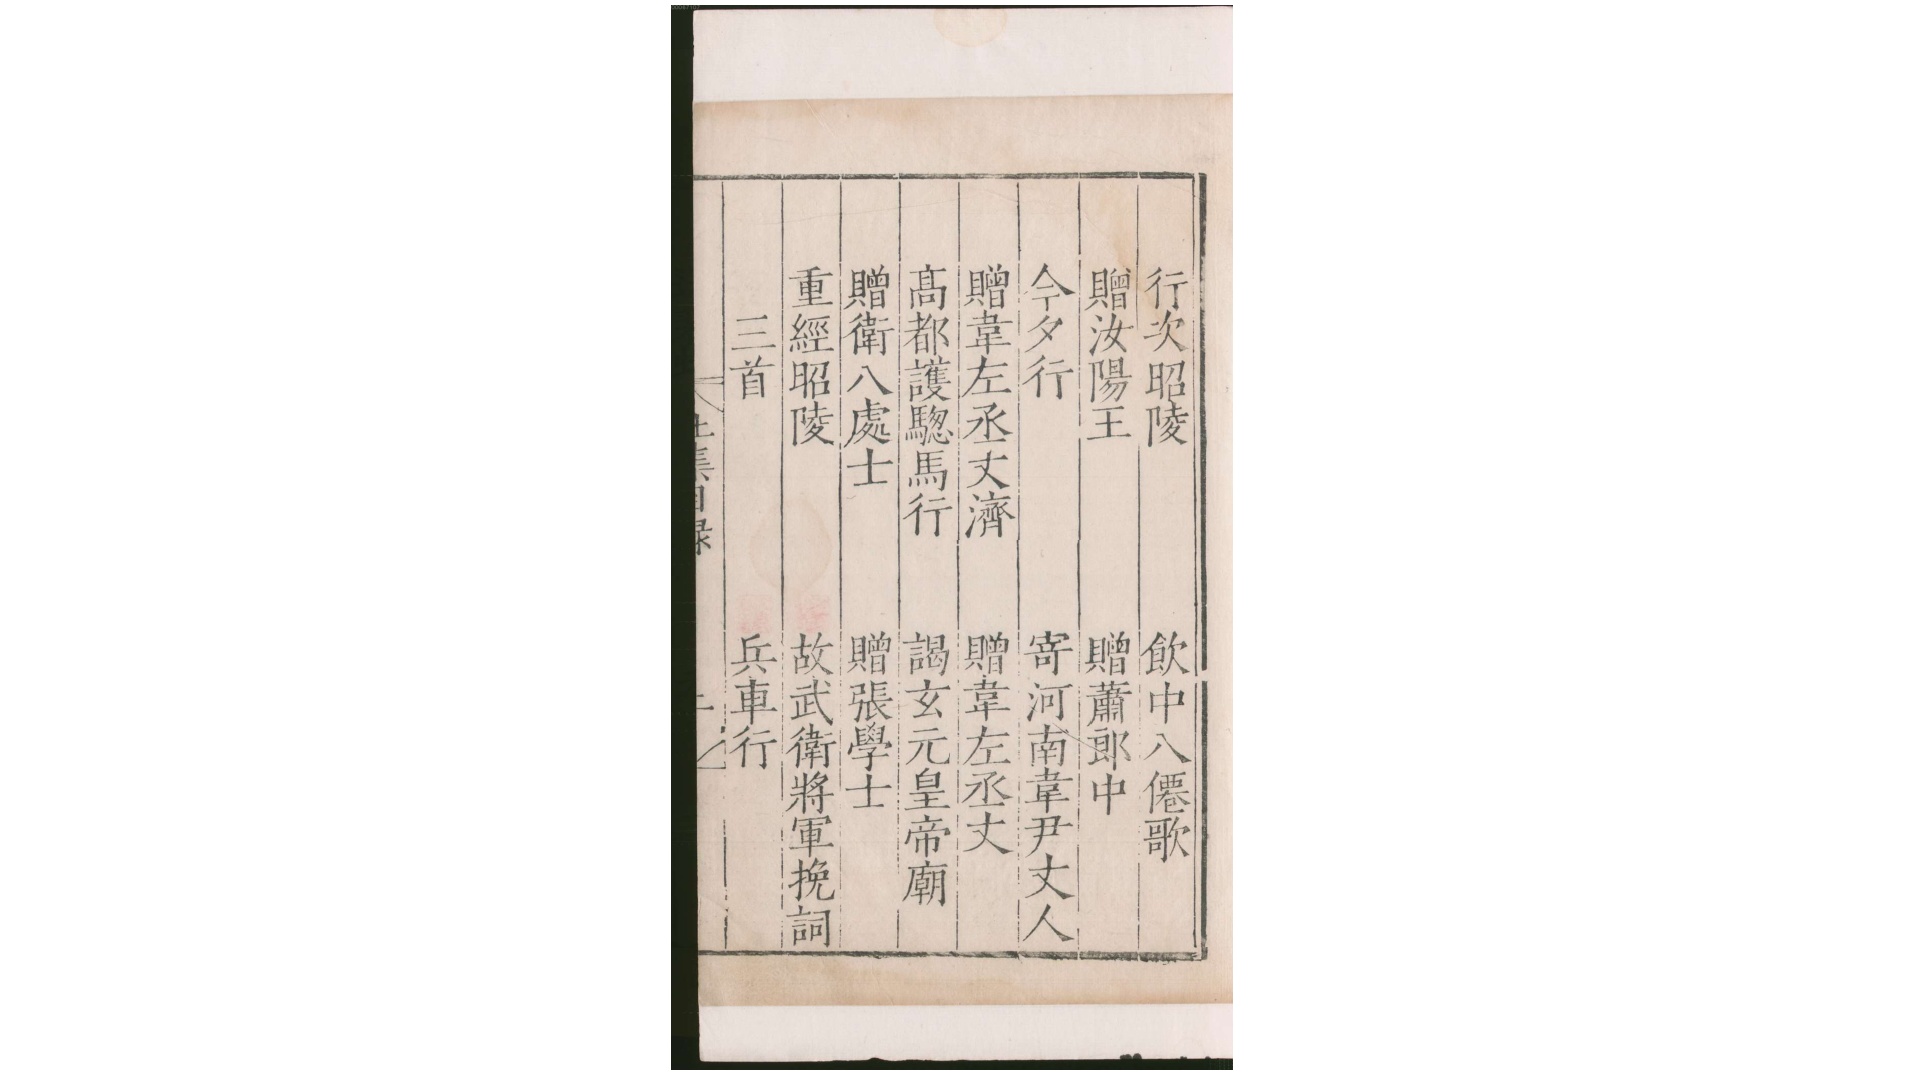 行次昭陵　飲中八僊歌
贈汝陽王　贈蕭郎中
今夕行　寄河南韋尹丈人
贈韋左丞丈濟　贈韋左丞丈
髙都護驄馬行　謁玄元皇帝廟
贈衛八處士　贈張學士
重經昭陵　故武衛將軍挽詞
三首　兵車行
杜集目録